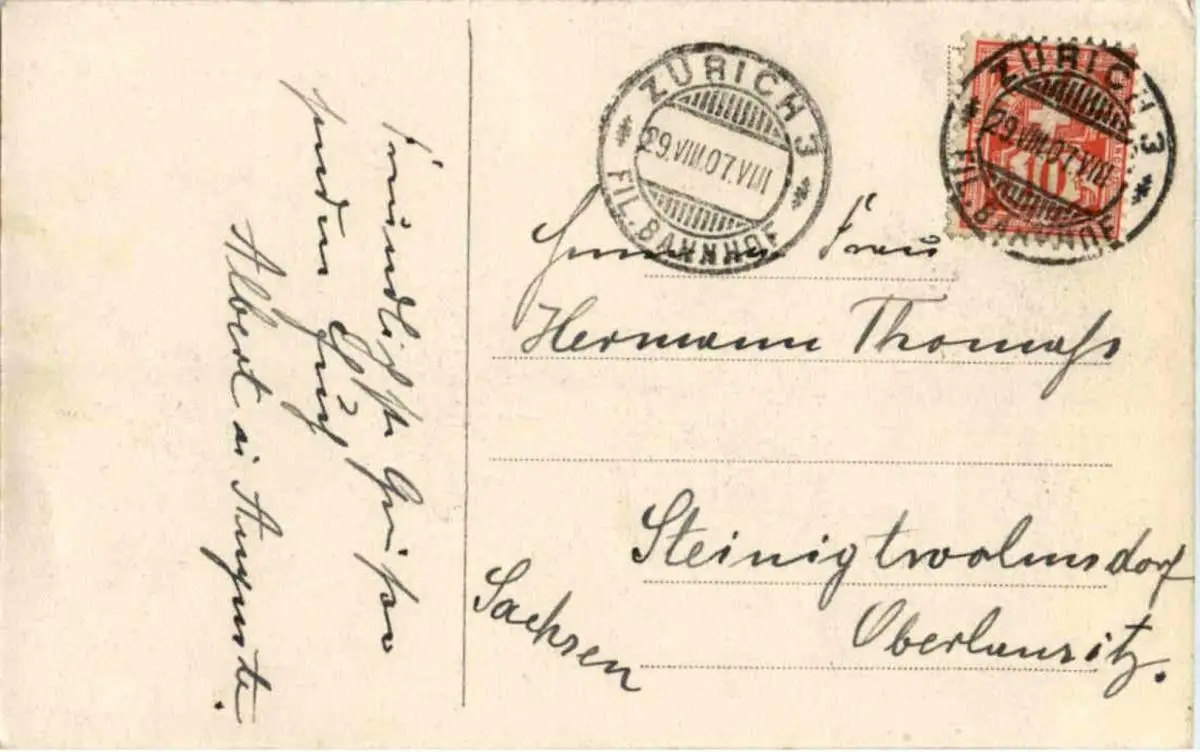 Freundlichste Grüße
senden Euch
Albert u. Auguste.
ZÜRICH 3
29.VIII.07.VIII
FIL. BAHNHOF
ZÜRICH 3
29.VIII.07.VIII
FIL. BAHNHOF
10
Frau
Hermann Thomaß
Steinigtwolmsdorf
Oberlausitz.
Sachsen